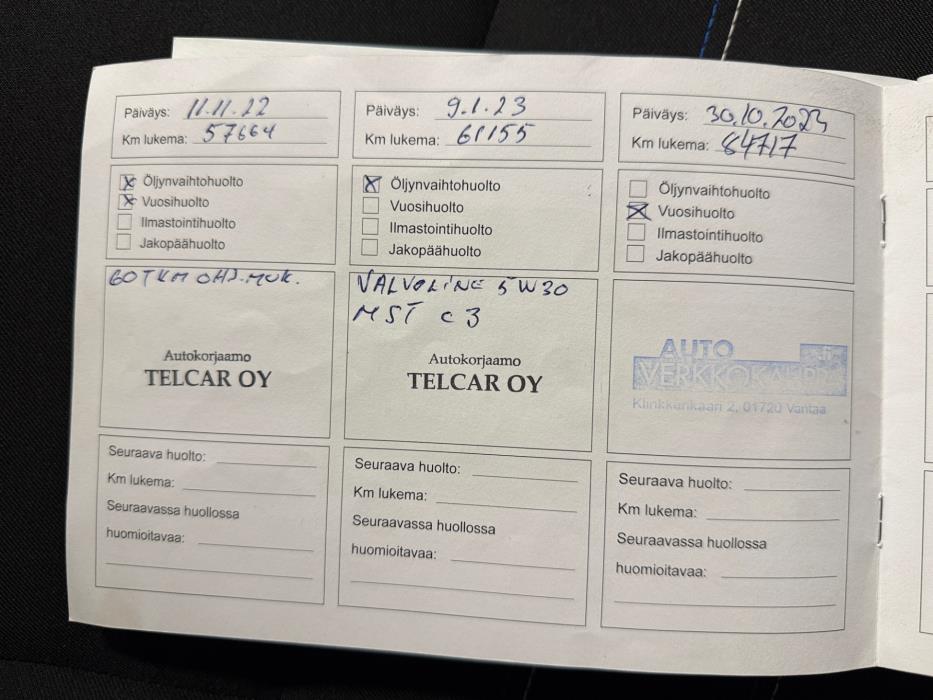 Päiväys: 11.11.22
Km lukema: 57664
☒ Öljynvaihtohuolto
☒ Vuosihuolto
☐ Ilmastointihuolto
☐ Jakopäähuolto
60 TKM OHJ.MUK.
Autokorjaamo
TELCAR OY
Seuraava huolto:
Km lukema:
Seuraavassa huollossa
huomioitavaa:
Päiväys: 9.1.23
Km lukema: 61155
☒ Öljynvaihtohuolto
☐ Vuosihuolto
☐ Ilmastointihuolto
☐ Jakopäähuolto
VALVOLINE 5W30
MST C3
Autokorjaamo
TELCAR OY
Seuraava huolto:
Km lukema:
Seuraavassa huollossa
huomioitavaa:
Päiväys: 30.10.2023
Km lukema: 84717
☐ Öljynvaihtohuolto
☒ Vuosihuolto
☐ Ilmastointihuolto
☐ Jakopäähuolto
AUTO
VERKKOKAUPPA
Klinkkerikaari 2, 01720 Vantaa
Seuraava huolto:
Km lukema:
Seuraavassa huollossa
huomioitavaa: